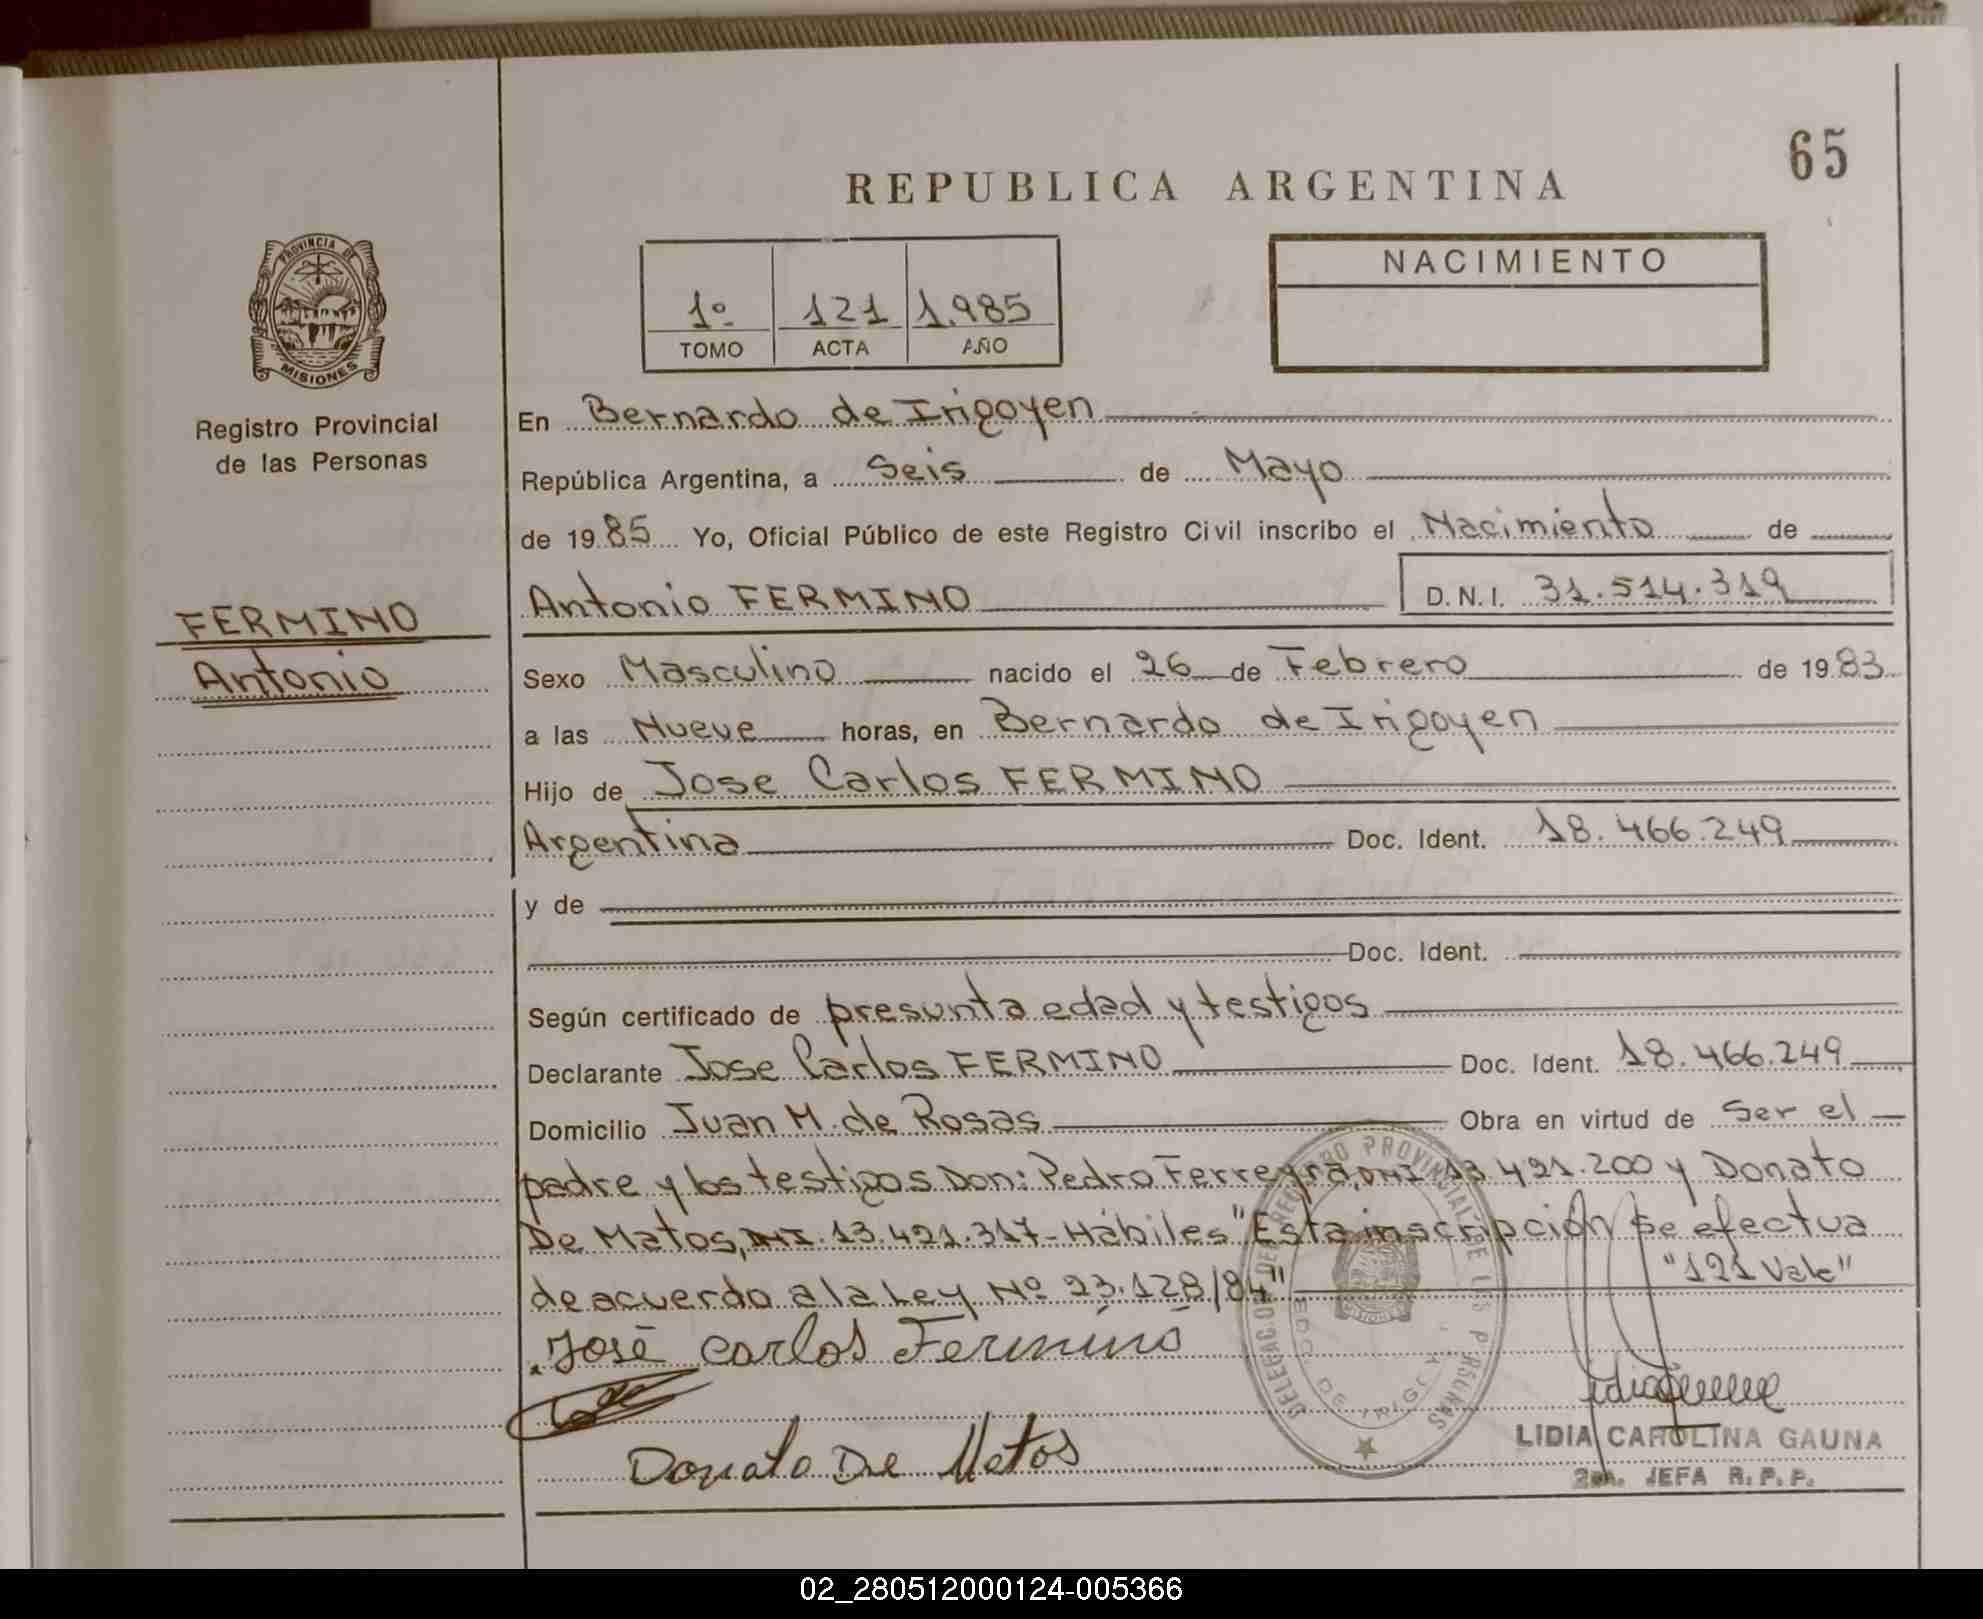 65
REPUBLICA ARGENTINA
PROVINCIA DE
MISIONES
1º 121 1.985
TOMO ACTA AÑO
NACIMIENTO
Registro Provincial
de las Personas
FERMINO
Antonio
En Bernardo de Irigoyen
República Argentina, a Seis de Mayo
de 1985 Yo, Oficial Público de este Registro Civil inscribo el Nacimiento de
Antonio FERMINO D.N.I. 31.514.319
Sexo Masculino nacido el 26 de Febrero de 1983
a las Nueve horas, en Bernardo de Irigoyen
Hijo de Jose Carlos FERMINO
Argentina Doc. Ident. 18.466.249
y de
Doc. Ident.
Según certificado de presunta edad y testigos
Declarante Jose Carlos FERMINO Doc. Ident. 18.466.249
Domicilio Juan M. de Rosas Obra en virtud de Ser el
padre y los testigos Don: Pedro Ferreyra, DNI 13.421.200 y Donato
De Matos, DNI. 13.421.317-Hábiles "Esta inscripción se efectua
de acuerdo a la Ley Nº 23.128/84" "121 Vale"
José Carlos Fermino
Donato De Matos
LIDIA CAROLINA GAUNA
2da. JEFA R.P.P.
02_280512000124-005366